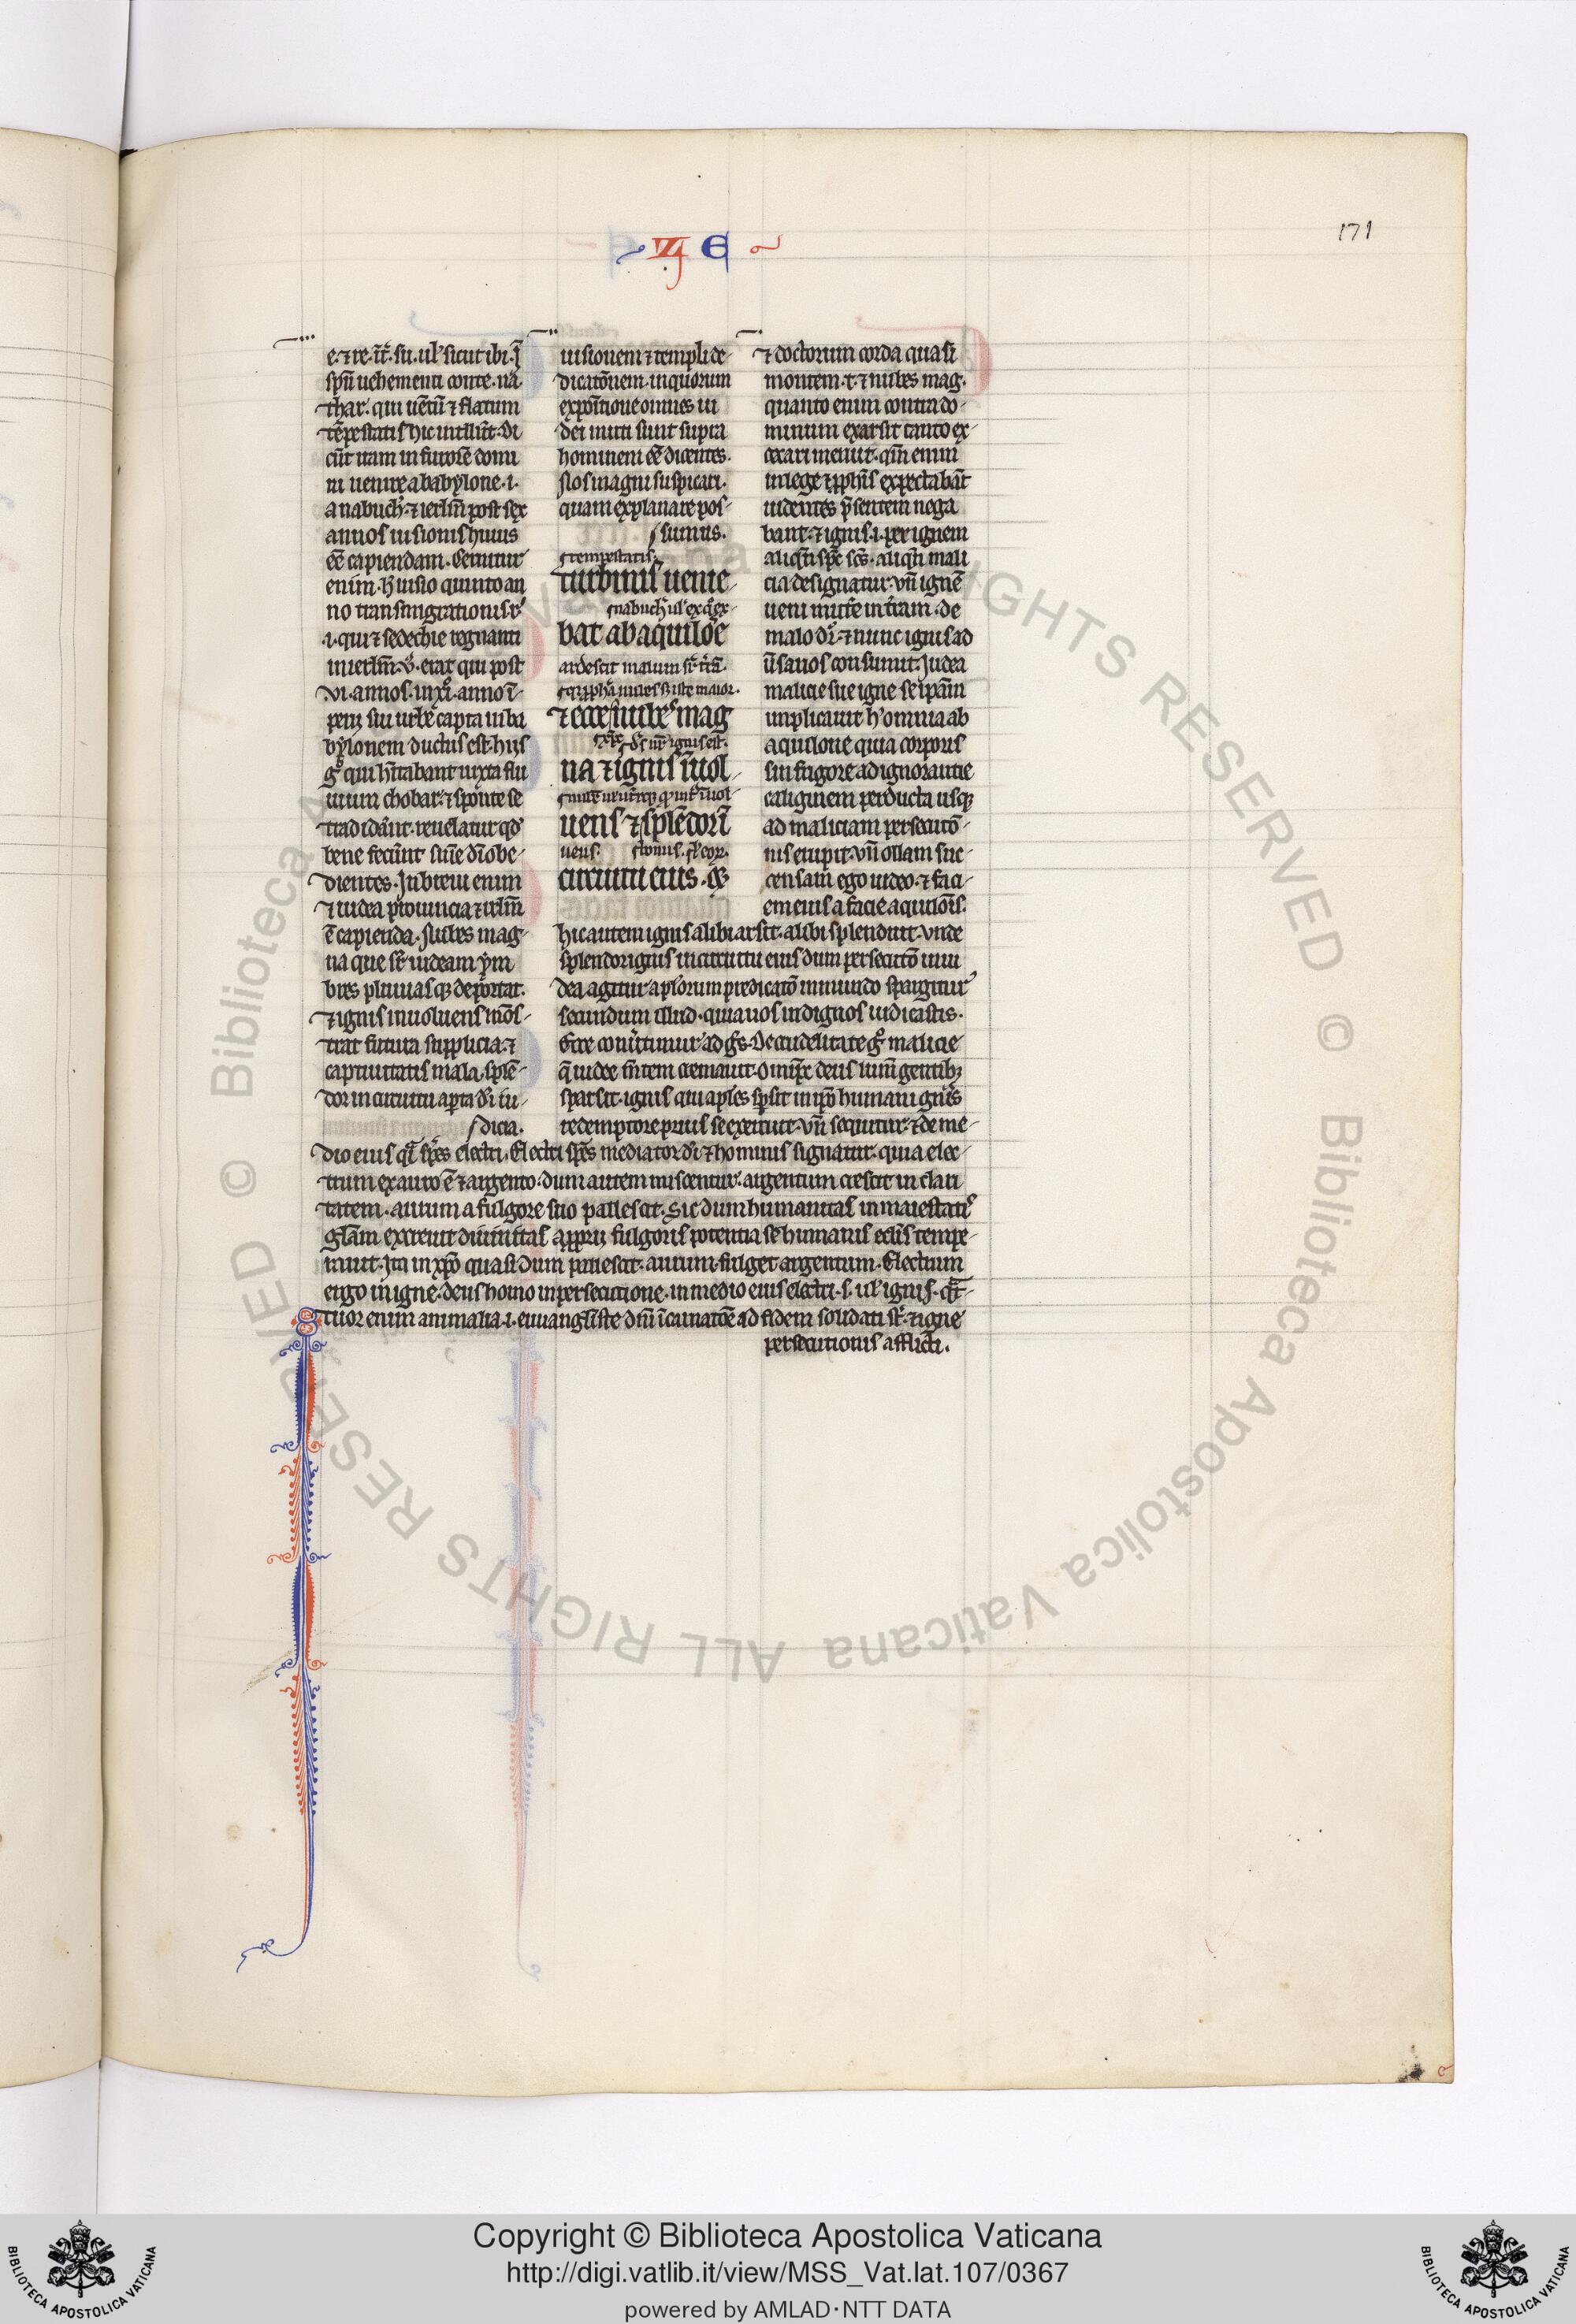 ZE
171
e. ⁊ re. ít̃. su. ul' sicut ibi. ĩ
sp̃u uehementi conte. na
thar. qui uẽtũ ⁊ flatum
tẽpestatis hic intlliũt. Di
cũt nam in furorẽ domi
ni uenire a babylone .i.
a nabuch̃. ⁊ ierlm̃ post sex
annos iusionis huius
eẽ capiendam. Scruitur
enim. h̃ uisio quinto an
no transmigrationis r̃
.i. qui ⁊ sedechie regnanti
in ierlm̃. erat qui post
vi. annos. in xi. anno ĩ
perii sui urbẽ capta in ba
bylonem ductus est. hiis
g̃ qui hĩtabant iuxta flu
uium chobar. ⁊ sponte se
tradidãnt. reuelatur qd'
bene fecũnt sniẽ dĩ obe
dientes. In breui enim
⁊ iudea prouincia ⁊ ierlm̃
ẽ capienda. Nubes mag
na que sr̃ iudeam ym
bres pluuiasqꝫ deportat.
⁊ ignis inuoluens mõs
trat futura supplicia. ⁊
captiuitatis mala. splẽ
dor in circuitu aperta dĩ iu
dicia.
uisionem ⁊ templi de
dicatõnem. in quorum
expõitione omnes iu
dei muti sunt supra
hominem eẽ dicentes.
nos magni suspicati.
quam explanare pos
sumus.
tempestatis.
turbinis uenie
nabuch̃. ul' ex q̃ ex
bat ab aquilõe
ardescit malum sr̃ tr̃ã.
⁊ ecce nubes mag
na ⁊ ignis ĩuol
uens ⁊ splẽdor ĩ
circuitu eius. qꝫ
⁊ doctorum corda quasi
montem. t. ⁊ nubes mag.
quanto enim contra do
minum exarsit tanto ex
cecari meruit. qm̃ enim
in lege ⁊ pph̃is expectabãt
uidentes p̃sentem nega
bant. ⁊ ignis .i. per ignem
aliqñ spc̃ sc̃s. aliqñ mali
cia designatur. vñ ignẽ
ueni mittẽ in tr̃am. de
malo dr̃. ⁊ nunc ignis ad
ũsarios consumit. Iudea
malicie sue igne se ipam̃
implicauit h̃ omnia ab
aquilone quia corporis
sui frigore ad ignorantie
caliginem perducta usqꝫ
ad maliciam persecutõ
nis erupit. vñ ollam suc
censam ego uideo. ⁊ faci
em eius a facie aquilõis.
hic autem ignis alibi arsit. alibi splenduit. vnde
splendor ignis in circuitu eius dum persecutõ in iu
dea agitur apl'orum predicatõ in mundo spargitur
secundum illud. quia uos indignos iudicastis.
Ecce conũtimur ad gẽs. De crudelitate g̃ malicie
q̃ iudee sẽtem cremauit. omp̃s deus lum̃ gentibꝫ
sparsit. ignis qui apl'os spsit in ip̃o humani gñis
redemptore prius se exercuit. vñ sequitur. ⁊ de me
dio eius q̃i spẽs electri. Electri spẽs mediator dĩ ⁊ hominis signatur. quia elec
trum ex auro ẽ ⁊ argento. dum autem miscentur. argentum crescit in clari
tatem. aurum a fulgore suo pallescit. Sic dum humanitas in maiestatis
glãm excreuit diuinitas a pprii fulgoris potentia se humanis oclis tempe
rauit. Ita in xp̃o quasi dum pallescit. aurum. fulget argentum. Electrum
ergo in igne. deus homo in persecutione. in medio eius electri. s. ul' ignis. q̃
tuor enim animalia .i. euuangl'iste dñi ĩcarnatõe ad fidem solidati sr̃. ⁊ igne
persecutionis afflicti.
Copyright © Biblioteca Apostolica Vaticana
http://digi.vatlib.it/view/MSS_Vat.lat.107/0367
powered by AMLAD·NTT DATA
BIBLIOTECA APOSTOLICA VATICANA
BIBLIOTECA APOSTOLICA VATICANA
© Biblioteca Apostolica Vaticana ALL RIGHTS RESERVED © Biblioteca Apostolica Vaticana ALL RIGHTS RESERVED